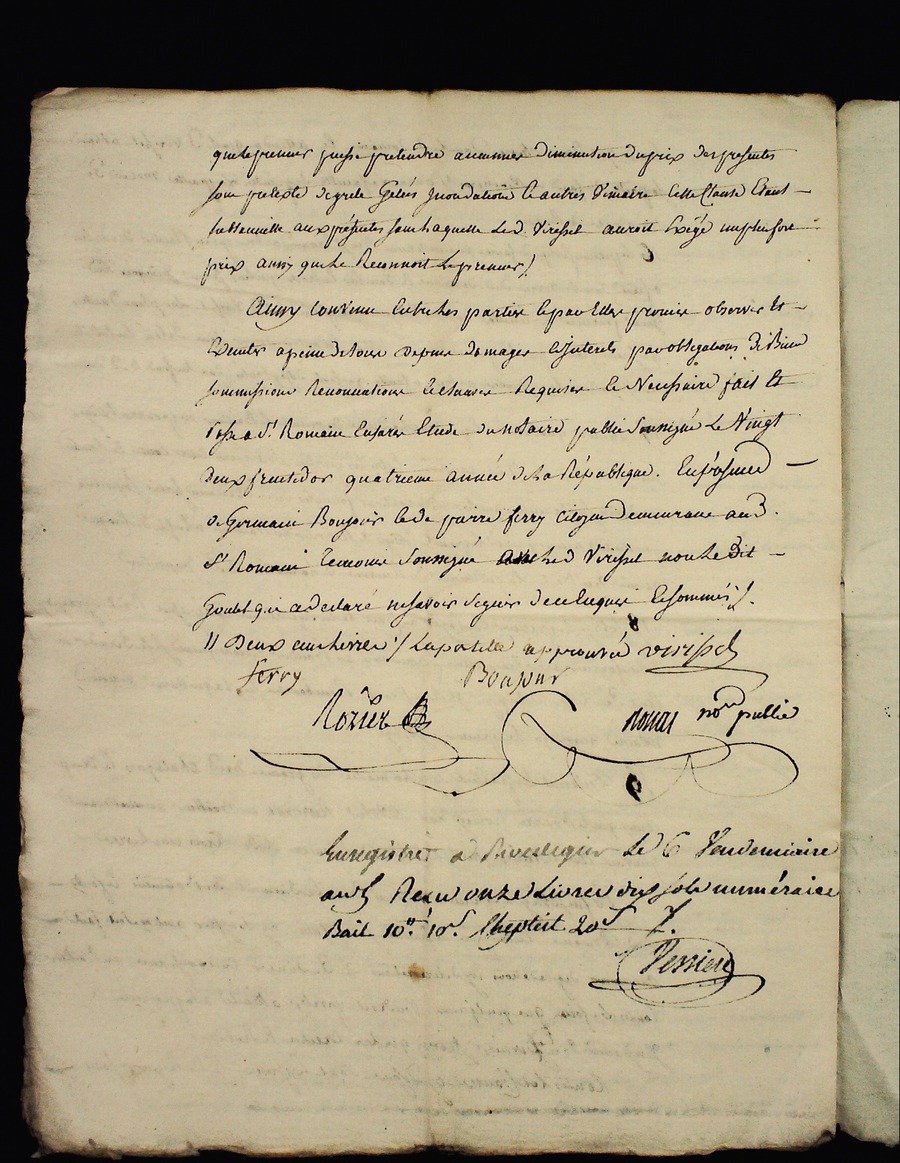 que le preneur puisse pretendre aucunne diminution du prix des presentes
sous pretexte de grele Gelées Inondation & autres Vimaire Cette Clause Etant
substancielle aux présentes sans laquelle led. Virissel auroit Exigé un plus fort
prix ainsy que le Reconnoit Le preneur /
Ainsy Convenu Entre les parties & par Elles promis observer Et
Executer a peine de tous depens domages & Interets par obligations de Biens
soummissions Renonciations & Clauses Requises & Necessaire fait Et
Passé a St. Romain Etude du notaire public soussigné Le Vingt
deux fructidor quatrieme année de La République. En présence
de Germain Boujour & de pierre ferry Citoyens demeurant aud.
St Romain Temoins soussigné led Virissel non le dit
Goulet qui a declaré ne savoir signer de ce Enquis & sommés /.
// Deux cu chevres / Lapostille approuvée virissel
ferry Boujour
Rozier nore public
Enregistré a Le 6 Vendemiaire
an 5 Recu onze Livres dix sols numéraire
Bail 10# 10s. Chepteil 20s